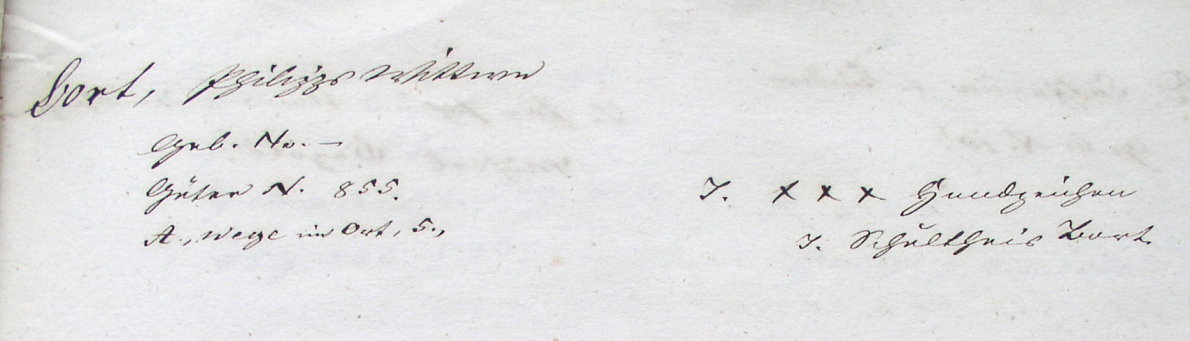 Bort, Philipps Wittwe
Geb. No. —
Güter N. 855.
A., Wege im Ort, 5.,
T. x x x Handzeichen
T. Schultheis Bort.